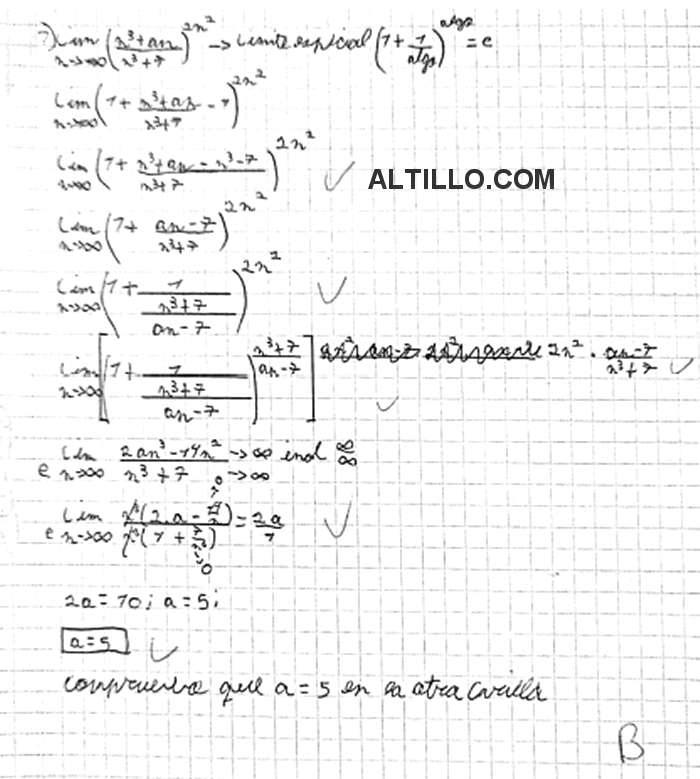 7) Lim n→∞ ((n³+an)/(n³+7))^(2n²) → Limite especial (1 + 1/algo)^algo = e
Lim n→∞ (1 + (n³+an)/(n³+7) - 1)^(2n²)
Lim n→∞ (1 + (n³+an-n³-7)/(n³+7))^(2n²) ✓
ALTILLO.COM
Lim n→∞ (1 + (an-7)/(n³+7))^(2n²)
Lim n→∞ (1 + 1/((n³+7)/(an-7)))^(2n²) ✓
Lim n→∞ [(1 + 1/((n³+7)/(an-7)))^((n³+7)/(an-7))]^(2n² · (an-7)/(n³+7)) ✓
✓
e Lim n→∞ (2an³-14n²)/(n³+7) →∞ →∞ ind ∞/∞
e Lim n→∞ n³(2.a - 14/n → 0)/n³(1 + 7/n³ → 0) = 2a/1 ✓
2a = 10 ; a = 5 ;
a = 5 ✓
comprueba que a = 5 en la otra carilla
B